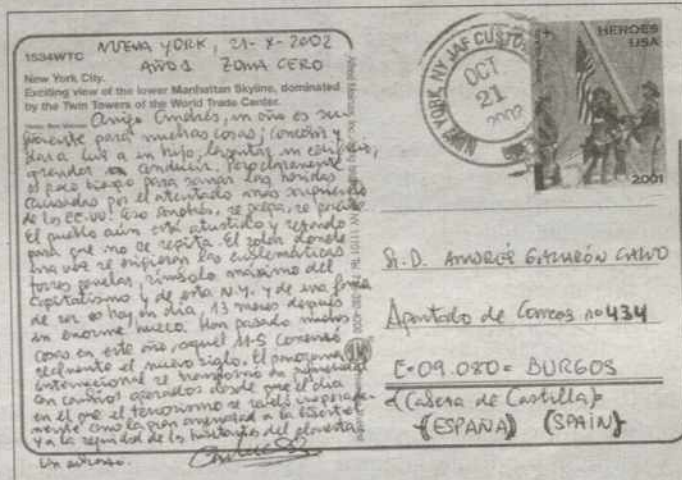 NUEVA YORK, 21-X-2002
AÑO 1 ZONA CERO
1534WTC
New York City.
Exciting view of the lower Manhattan Skyline, dominated
by the Twin Towers of the World Trade Center.
Amigo Andrés, un año es su-
ficiente para muchas cosas; concebir y
dar a luz a un hijo, levantar un edificio,
aprender a conducir. Pero claramente
es poco tiempo para sanar las heridas
causadas por el atentado más
de los EE.UU. Eso Andrés, se palpa, se percibe
El pueblo aún está aturdido y rezando
para que no se repita. El solar donde
una vez se erigieron las emblemáticas
torres gemelas, símbolo máximo del
capitalismo y de esta N.Y. y de una forma
de ser es hoy en día, 13 meses después
un enorme hueco. Han pasado muchas
cosas en este año, aquel 11-S comenzó
realmente el nuevo siglo. El panorama
internacional se transformó
con cambios operados desde que el día
en el que el terrorismo se
como la gran amenaza a la libertad
y a la seguridad de los habitantes del planeta
Un abrazo.
NEW YORK, NY JAF
OCT
21
2002
HEROES
USA
2001
Sr. D. ANDRÉS CALVO
Apartado de Correos nº 434
E-09.080= BURGOS
(Cabeza de Castilla)
(ESPAÑA) (SPAIN)